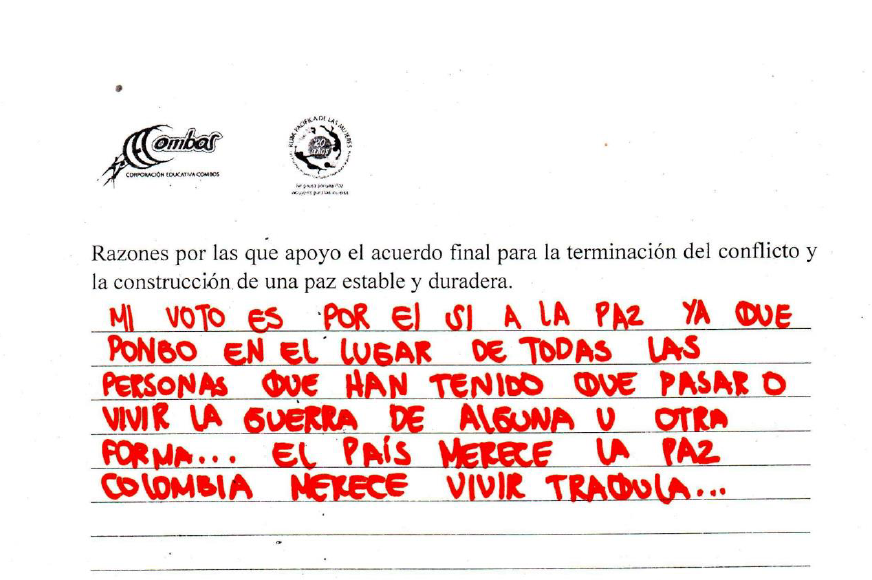 Combos
CORPORACIÓN EDUCATIVA COMBOS
RUTA PACÍFICA DE LAS MUJERES
20
AÑOS
Razones por las que apoyo el acuerdo final para la terminación del conflicto y
la construcción de una paz estable y duradera.
MI VOTO ES POR El SI A LA PAZ YA QUE
PONGO EN EL LUGAR DE TODAS LAS
PERSONAS QUE HAN TENIDO QUE PASAR O
VIVIR LA GUERRA DE ALGUNA U OTRA
FORMA... EL PAÍS MERECE LA PAZ
COLOMBIA MERECE VIVIR TRAQUILA...